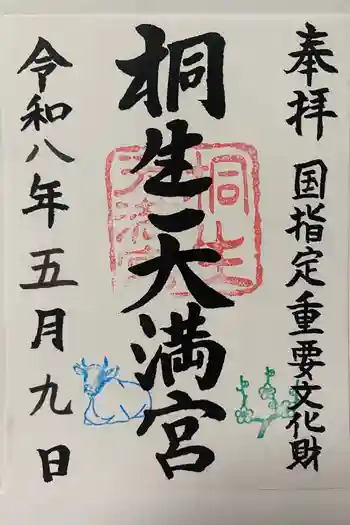 奉拝 国指定重要文化財
桐生天満宮
令和八年五月九日